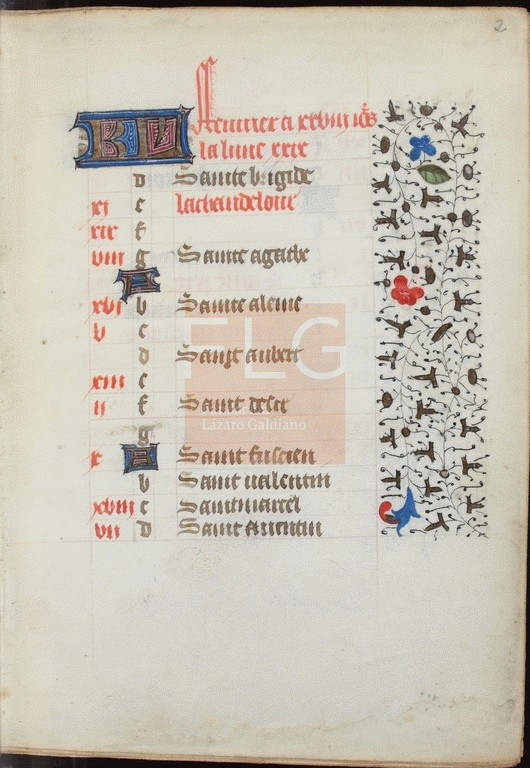 2
KL Feurier a xxviii iors
la lune xxix
d Sainte brigide
xi e la chandelour
xix f
viii g Sainte agathe
A
xvi b Sainte aleine
v c
d Saint aubert
xiii e
ii f Saint desir
g
x A Saint fuscien
b Saint valentin
xviii c Saint marcel
vii d Saint
FLG
Lázaro Galdiano